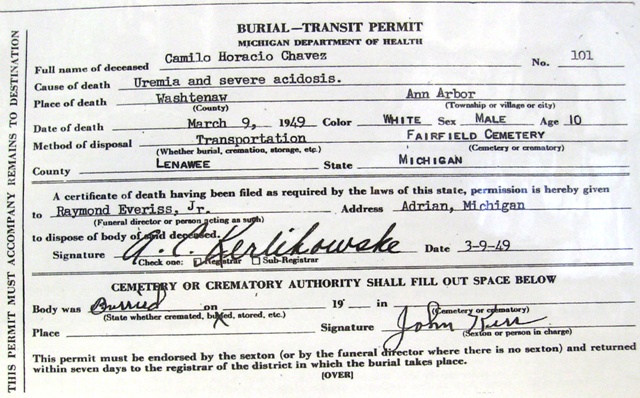 BURIAL—TRANSIT PERMIT
MICHIGAN DEPARTMENT OF HEALTH
Full name of deceased Camilo Horacio Chavez No. 101
Cause of death Uremia and severe acidosis.
Place of death Washtenaw Ann Arbor
(County) (Township or village or city)
Date of death March 9, 1949 Color WHITE Sex MALE Age 10
Method of disposal Transportation FAIRFIELD CEMETERY
(Whether burial, cremation, storage, etc.) (Cemetery or crematory)
County LENAWEE State MICHIGAN
A certificate of death having been filed as required by the laws of this state, permission is hereby given
to Raymond Everiss, Jr. Address Adrian, Michigan
(Funeral director or person acting as such)
to dispose of body of said deceased.
Signature A. C. Kerlikowske Date 3-9-49
Check one: Registrar Sub-Registrar
CEMETERY OR CREMATORY AUTHORITY SHALL FILL OUT SPACE BELOW
Body was Burried on 19 in
(State whether cremated, buried, stored, etc.) (Cemetery or crematory)
Place Signature John
(Sexton or person in charge)
This permit must be endorsed by the sexton (or by the funeral director where there is no sexton) and returned
within seven days to the registrar of the district in which the burial takes place.
[OVER]
THIS PERMIT MUST ACCOMPANY REMAINS TO DESTINATION